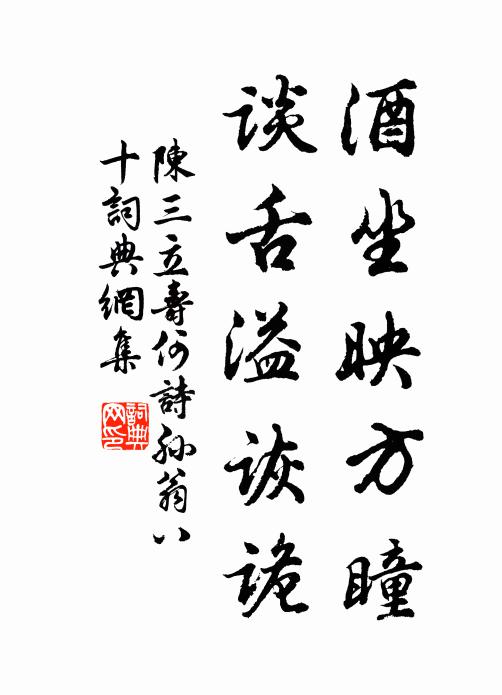 酒坐映方瞳
談舌溢詼詭
陳三立壽何詩孫翁八
十詞典網集
詞典
网印